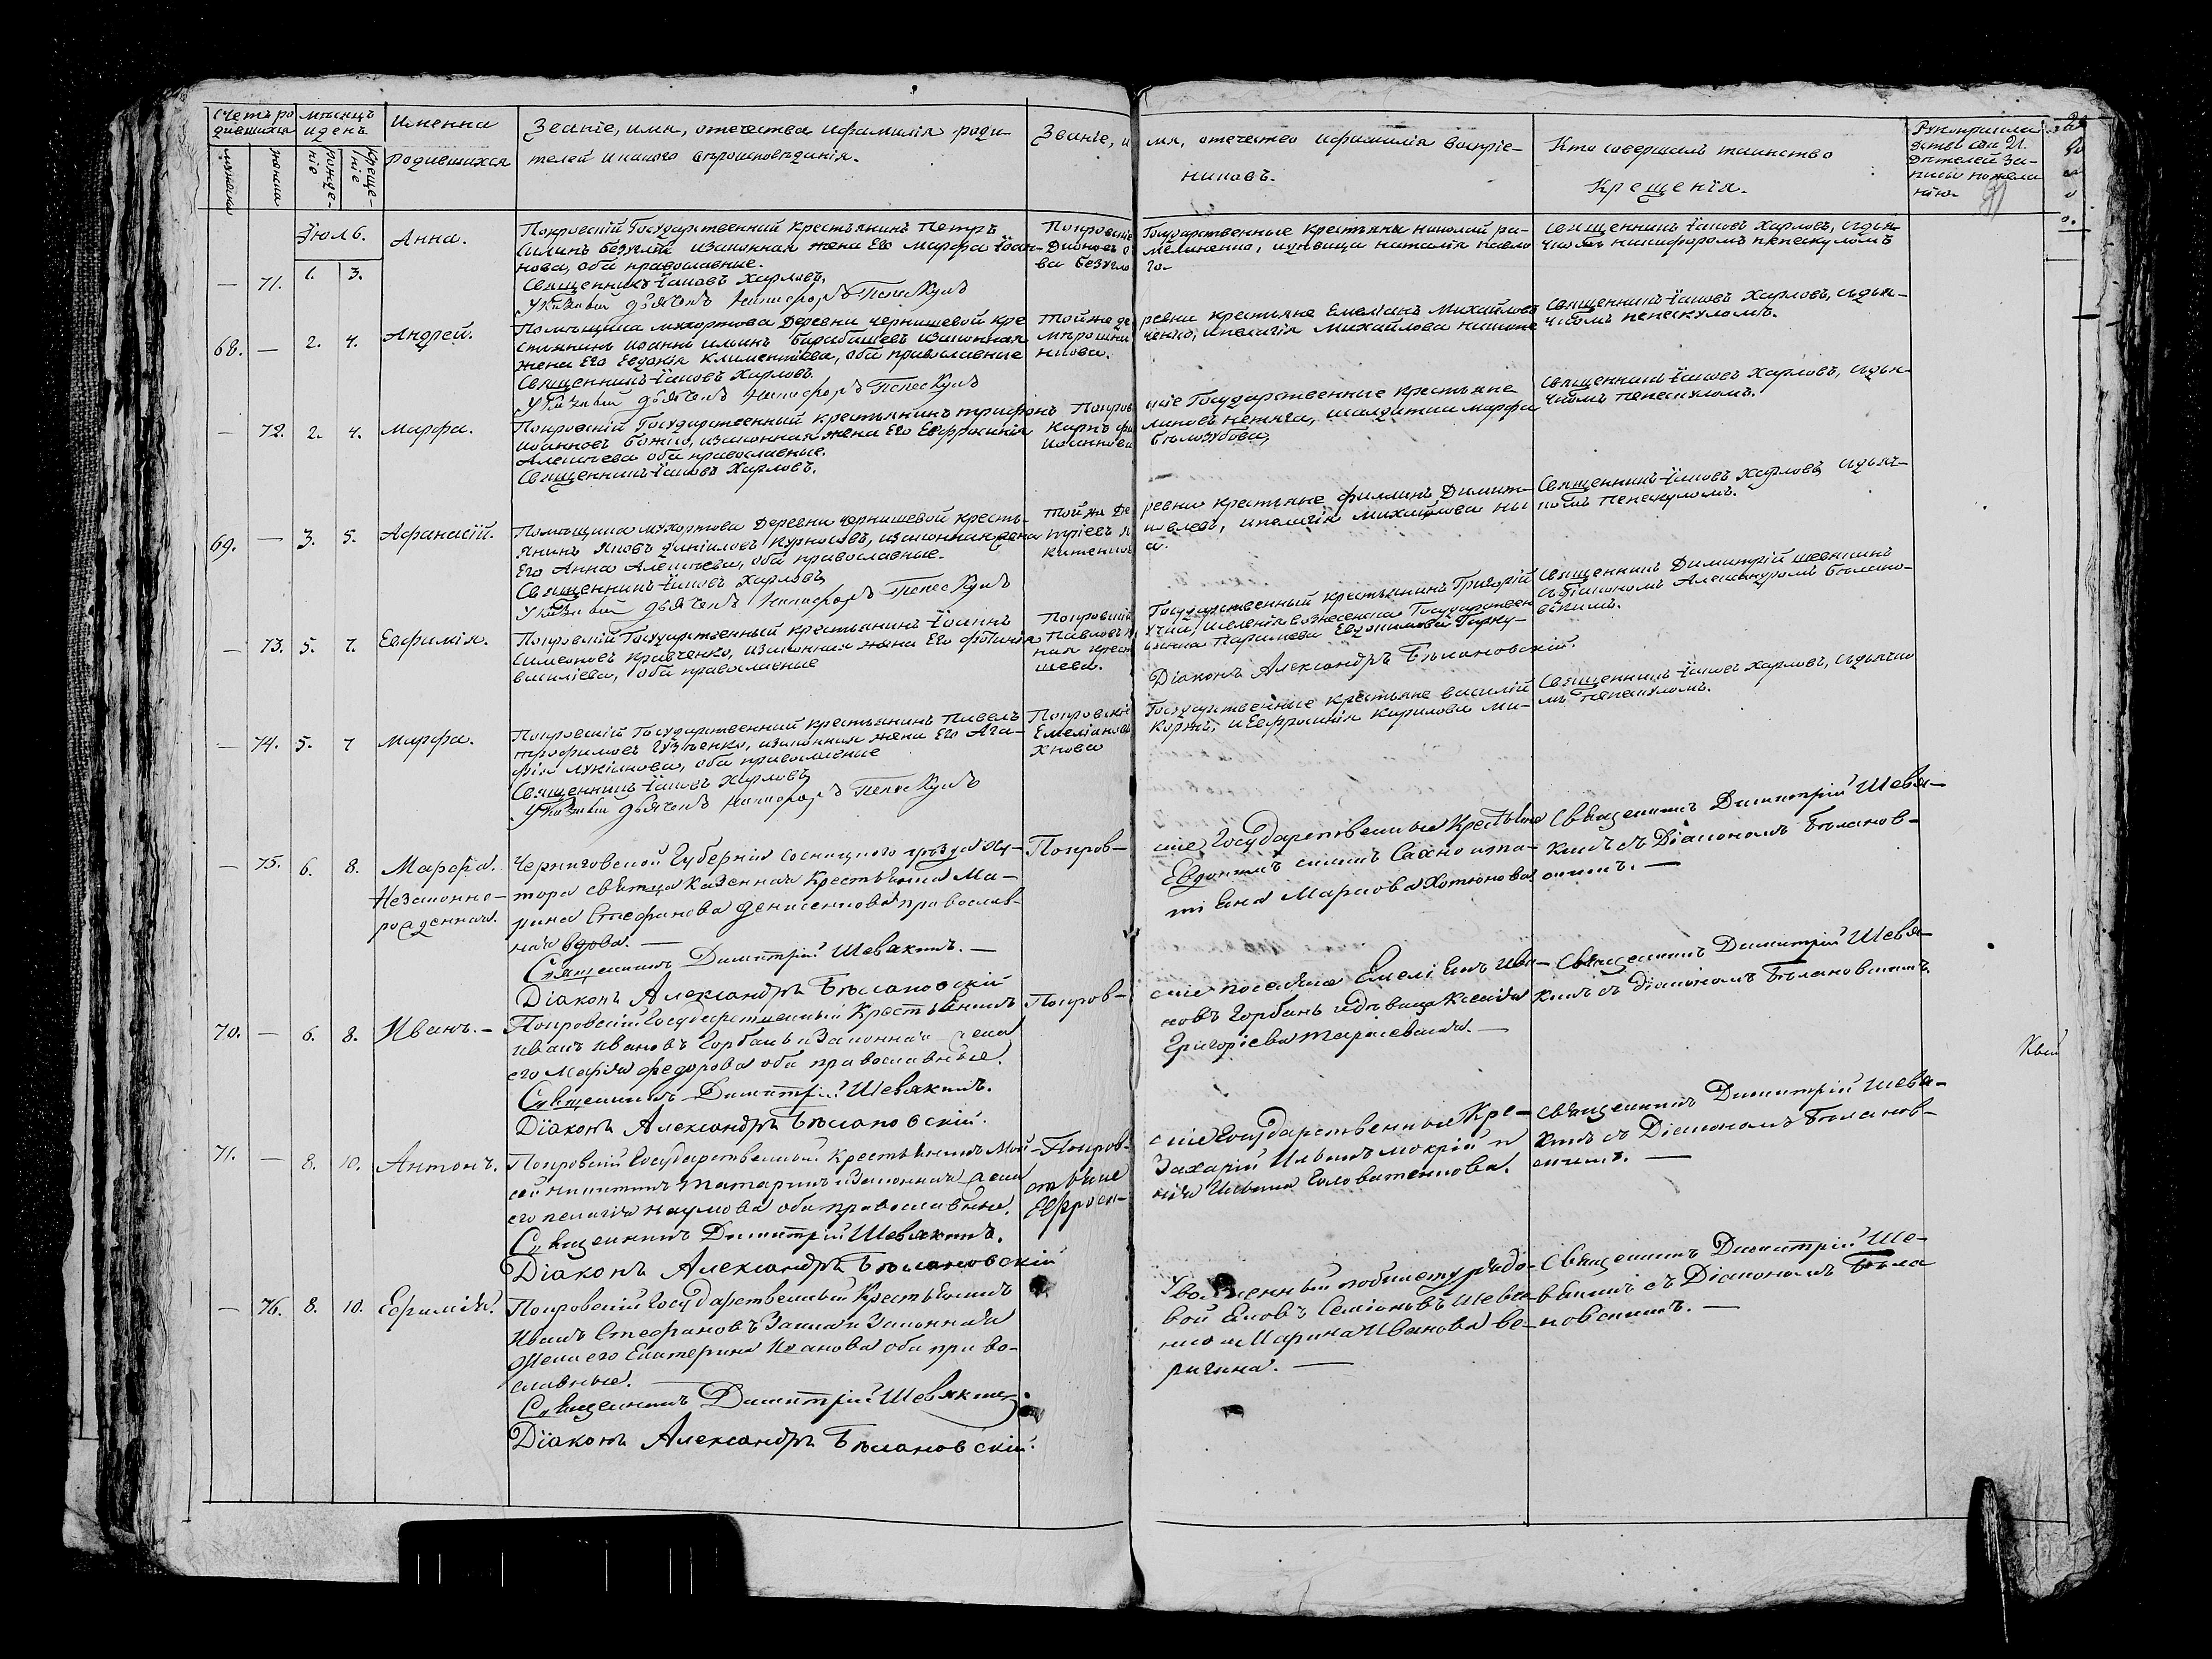 Счетъ ро
дившихся
мѣсяцъ
и день
Имена
Званіе, имя, отечества и фамилія роди-
Званіе, и
мя, отечество и фамилія воспріе-
Кто совершалъ таинство
мужска
женска
рожде-
ніе
Креще-
ніе
родившихся
телей и какого вѣроисповѣданія.
никовъ.
Крещенія.
Іюль.
71. 1. 3. Анна.
Покровскій Государственный Крестьянинъ Петръ
Силинъ Безуглый и законная жена Его Марфа Іоан-
нова, оба православные.
Священникъ Іаковъ Харловъ.
Указный дьячекъ Никифоръ Пепескулъ
Покровскіе
Діоновъ
ва Безугло
Государственные Крестьяне Николай
и дѣвица Наталія Павло
го.
Священникъ Іаковъ Харловъ, съ дья-
чкомъ Никифоромъ Пепескуломъ
68. — 2. 4. Андрей.
Помѣщика Мухортова Деревни Чернишевой Кре
стьянинъ Иоаннъ Ильинъ Барабашевъ и законная
жена Его Евдокія Климентіева, оба православные
Священникъ Іаковъ Харловъ.
Указный дьячекъ Никифоръ Пепескулъ
Той же де
Мирошни
никова.
ревни крестьяне Емеліанъ Михайловъ
ченко, и Пелагія Михайлова
Священникъ Іаковъ Харловъ, съ дья-
чкомъ Пепескуломъ.
— 72. 2. 4. Марфа.
Покровскій Государственный Крестьянинъ Трифонъ
Иоанновъ Божко, и законная жена Его Евфросинія
Алексѣева оба православные.
Священникъ Іаковъ Харловъ.
Покров
Карпъ Фи
Иоаннова
скіе Государственные Крестьяне
липовъ Нетяга, и солдатка Марфа
Бѣлозубова,
Священникъ Іаковъ Харловъ, съ дья-
чкомъ Пепескуломъ.
69. — 3. 5. Афанасій.
Помѣщика Мухортова Деревни Чернишевой Кресть-
янинъ Яковъ Даніиловъ Курносовъ, и законная жена
Его Анна Алексѣева, оба православные.
Священникъ Іаковъ Харловъ
Указный дьячекъ Никифоръ Пепескулъ
Той же Де
тріевъ Я
ревни крестьяне Филлипъ Димит-
ковлевъ, и Пелагія Михайлова Ни
а.
Священникъ Іаковъ Харловъ, съ дьяч-
комъ Пепескуломъ.
— 73. 5. 7. Евфимія.
Покровскій Государственный Крестьянинъ Іоаннъ
Симеоновъ Кравченко, и законная жена Его Фотинія
Василіева, оба православные
Покровскій
Павловъ К
ная крест
шева.
Государственный Крестьянинъ Григорій
селенія Вознесенска Государствен
ьянка Параскева Евдокимова Гарку-
Діаконъ Александръ Бѣлановскій.
Священникъ Димитрій Шевякинъ
съ Діакономъ Александромъ Бѣлано-
вскимъ.
— 74. 5. 7 Марфа.
Покровскій Государственный Крестьянинъ Павелъ
Трофимовъ Гузѣенко, и законная жена Его Ага-
фія Лукіанова, оба православные
Священникъ Іаковъ Харловъ
Указный дьячекъ Никифоръ Пепескулъ
Покровскіе
Емеліановъ
хнова
Государственные Крестьяне Василій
Коржъ, и Евфросинія Кирилова Ми-
Священникъ Іаковъ Харловъ, съ дьячко
мъ Пепескуломъ.
— 75. 6. 8. Марфа.
Незаконно-
рожденная.
Черниговской Губерніи Сосницкого уѣзда Ху-
тора Казенная Крестьянка Ма-
рина Стефанова Денисенкова православ-
ная вдова. —
Священникъ Димитрій Шевякинъ. —
Діаконъ Александръ Бѣлановскій
Покров-
скіе Государственные Крестьяне
Евдокимъ Сахно и та-
тіана Маркова Хотюнова.
Священникъ Димитрій Шевя-
кинъ съ Діакономъ Бѣланов-
скимъ. —
70. — 6. 8. Иванъ. —
Покровскій Государственный Крестьянинъ
Иванъ Ивановъ Горбань и Законная жена
его Марія Федорова оба православные.
Священникъ Димитрій Шевякинъ.
Діаконъ Александръ Бѣлановскій.
Покров-
скіе поселяне Емеліанъ Ива-
новъ Горбань и дѣвица Ксенія
Григоріева Тарасевская. —
Священникъ Димитрій Шевя-
кинъ съ Діакономъ Бѣлановскимъ
71. — 8. 10. Антонъ.
Покровскій Государственный Крестьянинъ Мои-
сей Никитинъ Татаринъ и Законная жена
его Пелагія Наумова оба православные.
Священникъ Димитрій Шевякинъ.
Діаконъ Александръ Бѣлановскій
Покров-
стьяне
Ефроси-
скіе Государственные Кре-
Захарій Ильинъ Мокрій и
нія Ильина Головатенкова.
Священникъ Димитрій Шевя-
кинъ съ Діакономъ Бѣланов-
скимъ. —
— 76. 8. 10. Ефимія.
Покровскій Государственный Крестьянинъ
Иванъ Стефановъ Заика и Законная
Жена его Екатерина Иванова оба право-
славные.
Священникъ Димитрій Шевякинъ
Діаконъ Александръ Бѣлановскій.
Уволенный по билету рядо-
вой Яковъ Семіоновъ Шевче-
нко и Марина Иванова Ве-
ричина. —
Священникъ Димитрій Ше-
вякинъ съ Діакономъ Бѣла
новскимъ. —